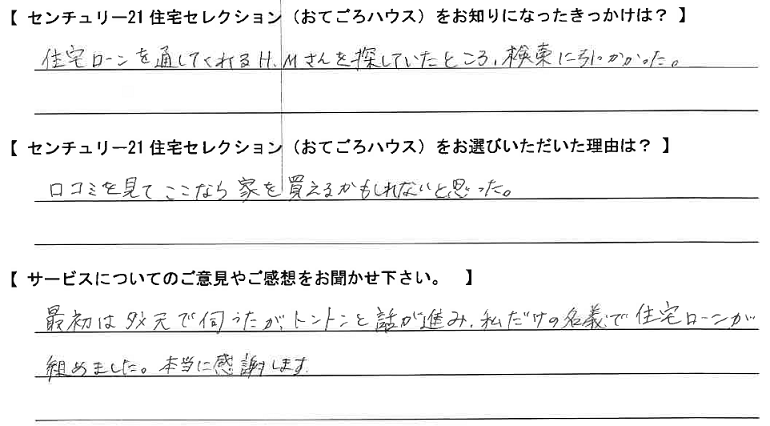 【 センチュリー21住宅セレクション（おてごろハウス）をお知りになったきっかけは？ 】
住宅ローンを通してくれるH.Mさんを探していたところ、検索に引っかかった。
【 センチュリー21住宅セレクション（おてごろハウス）をお選びいただいた理由は？ 】
口コミを見てここなら家を買えるかもしれないと思った。
【 サービスについてのご意見やご感想をお聞かせ下さい。 】
最初はダメ元で伺うたが、トントンと話が進み、私だけの名義で住宅ローンが
組めました。本当に感謝します